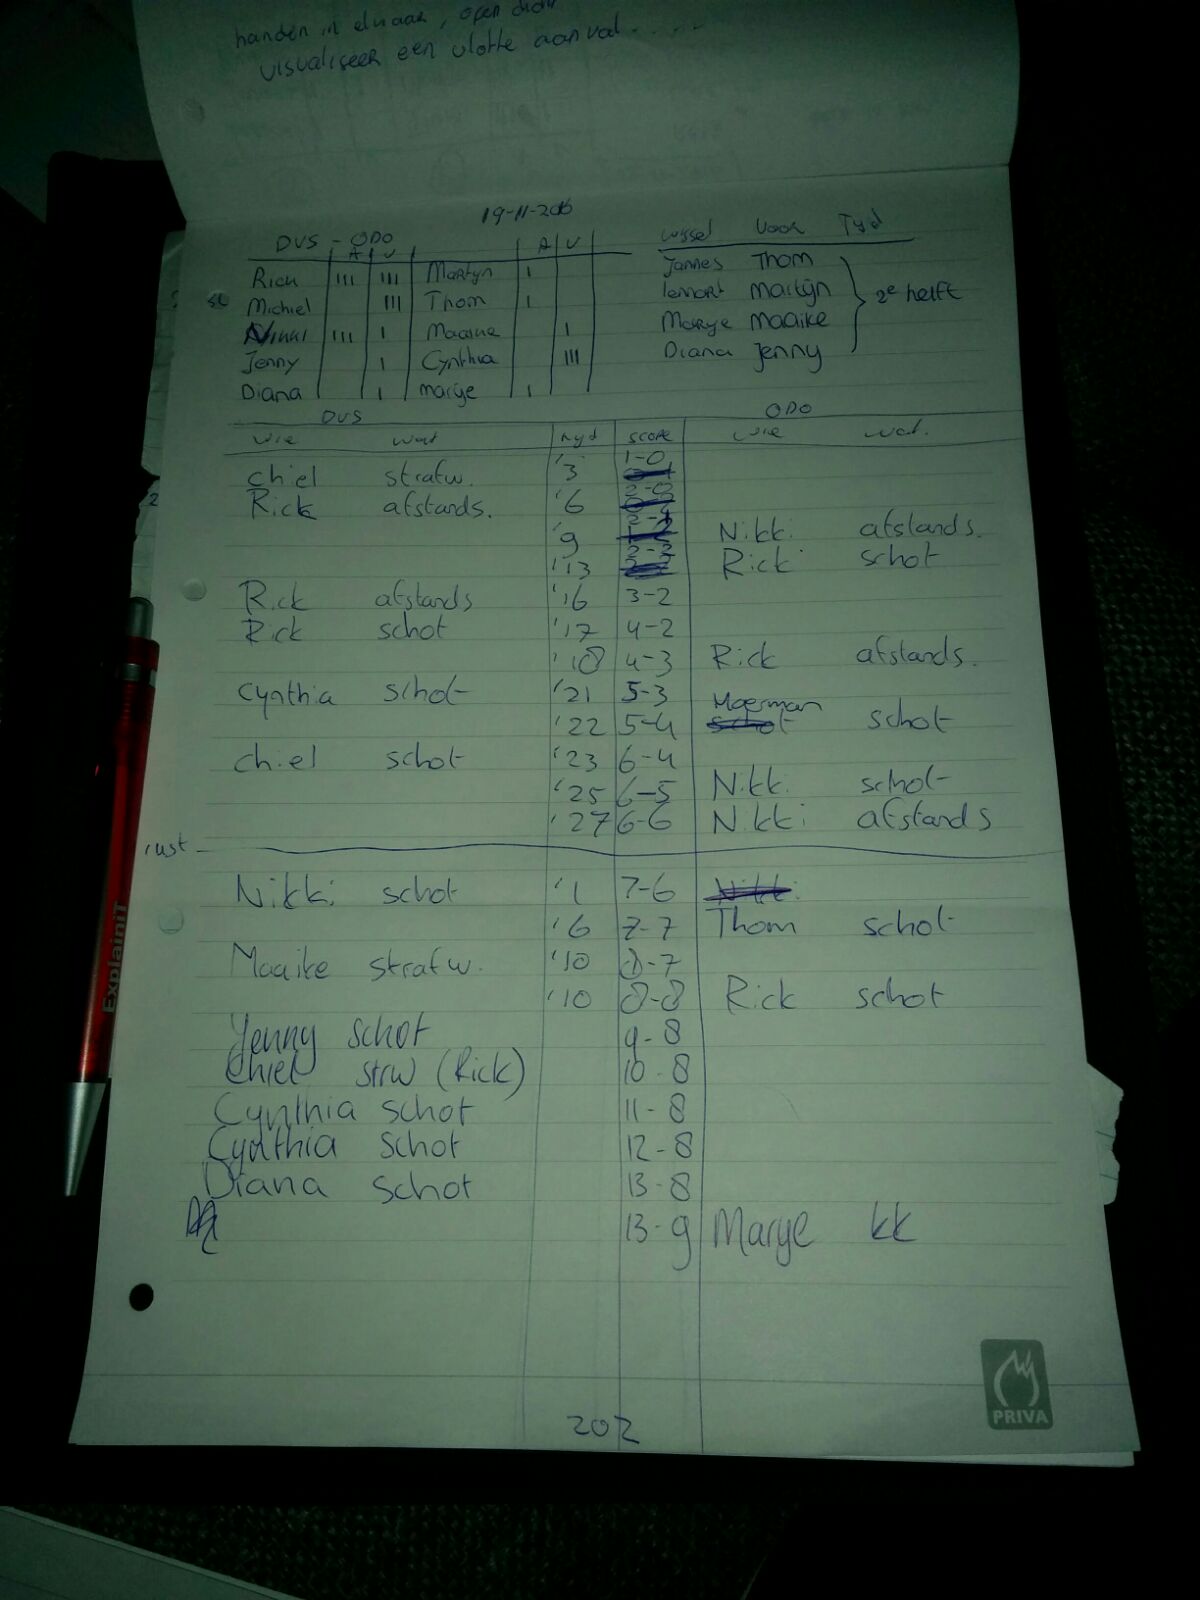 handen in elkaar, open
visualiseer een vlotte aanval.....
19-11-2016
DVS - ODO
A V A V
Rick III III Martijn I
Michiel III Thom I
Nikki III I Maaike I
Jenny I Cynthia III
Diana I Marije I
Wissel Voor Tijd
Jannes Thom
Lennart Martijn
Marije Maaike
Diana Jenny
2e helft
DVS ODO
wie wat tijd score wie wat.
chiel strafw. '3 1-0
Rick afstands. '6 2-0
'9 2-1 Nikki afstands.
'13 2-2 Rick schot
Rick afstands '16 3-2
Rick schot '17 4-2
'18 4-3 Rick afstands.
Cynthia schot '21 5-3
'22 5-4 Moerman schot
chiel schot '23 6-4
'25 6-5 Nikki schot
'27 6-6 Nikki afstands
rust
Nikki schot '1 7-6
'6 7-7 Thom schot
Maaike strafw. '10 8-7
'10 8-8 Rick schot
Jenny schot 9-8
Chiel strw (Rick) 10-8
Cynthia schot 11-8
Cynthia schot 12-8
Diana schot 13-8
13-9 Marije kk
202
PRIVA
ExplainiT